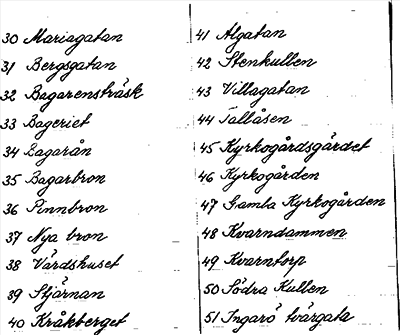 30 Mariagatan
31 Bergsgatan
32 Bagarensträsk
33 Bageriet
34 Bagarån
35 Bagarbron
36 Pinnbron
37 Nya bron
38 Värdshuset
39 Stjärnan
40 Kråkberget
41 Algatan
42 Stenkullen
43 Villagatan
44 Tallåsen
45 Kyrkogårdsgärdet
46 Kyrkogården
47 Gamla Kyrkogården
48 Kvarndammen
49 Kvarntorp
50 Södra Kullen
51 Ingarö tvärgata